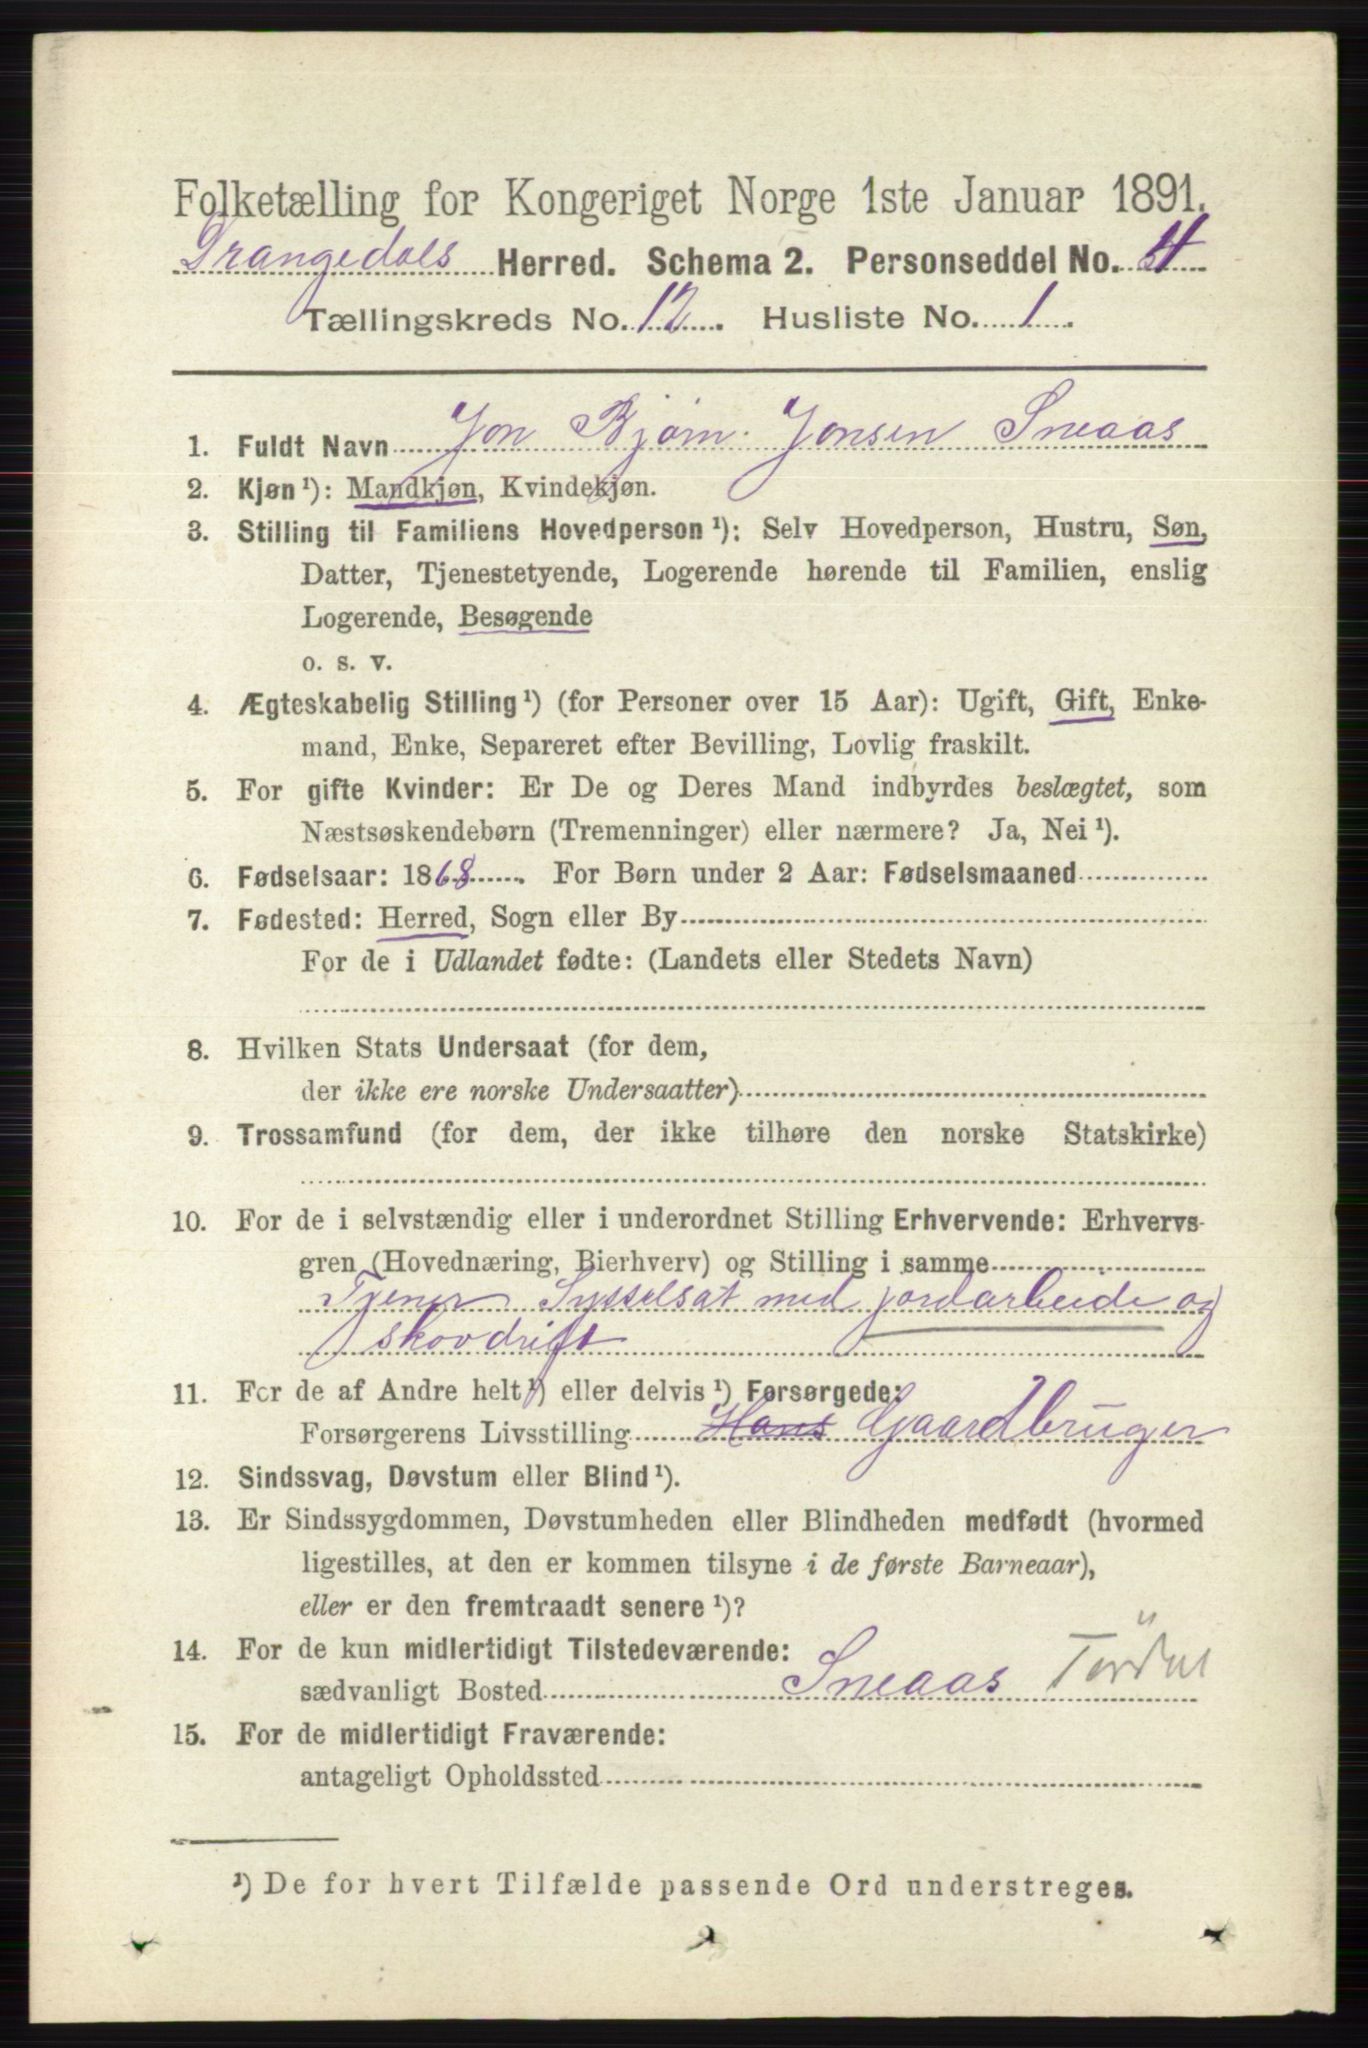 Folketælling for Kongeriget Norge 1ste Januar 1891.
Drangedals Herred. Schema 2. Personseddel No. 4
Tællingskreds No. 12. Husliste No. 1.
1. Fuldt Navn Jon Bjørn Jonsen Sneaas
2. Kjøn¹): Mandkjøn, Kvindekjøn.
3. Stilling til Familiens Hovedperson¹): Selv Hovedperson, Hustru, Søn,
Datter, Tjenestetyende, Logerende hørende til Familien, enslig
Logerende, Besøgende
o. s. v.
4. Ægteskabelig Stilling¹) (for Personer over 15 Aar): Ugift, Gift, Enke-
mand, Enke, Separeret efter Bevilling, Lovlig fraskilt.
5. For gifte Kvinder: Er De og Deres Mand indbyrdes beslægtet, som
Næstsøskendebørn (Tremenninger) eller nærmere? Ja, Nei¹).
6. Fødselsaar: 1868. For Børn under 2 Aar: Fødselsmaaned
7. Fødested: Herred, Sogn eller By
For de i Udlandet fødte: (Landets eller Stedets Navn)
8. Hvilken Stats Undersaat (for dem,
der ikke ere norske Undersaatter)
9. Trossamfund (for dem, der ikke tilhøre den norske Statskirke)
10. For de i selvstændig eller i underordnet Stilling Erhvervende: Erhvervs-
gren (Hovednæring, Bierhverv) og Stilling i samme
Tjener Sysselsat med jordarbeide og
skovdrift
11. For de af Andre helt¹) eller delvis¹) Forsørgede:
Forsørgerens Livsstilling Hans Gaardbruger
12. Sindssvag, Døvstum eller Blind¹).
13. Er Sindssygdommen, Døvstumheden eller Blindheden medfødt (hvormed
ligestilles, at den er kommen tilsyne i de første Barneaar),
eller er den fremtraadt senere¹)?
14. For de kun midlertidigt Tilstedeværende:
sædvanligt Bosted Sneaas Tördal
15. For de midlertidigt Fraværende:
antageligt Opholdssted
¹) De for hvert Tilfælde passende Ord understreges.